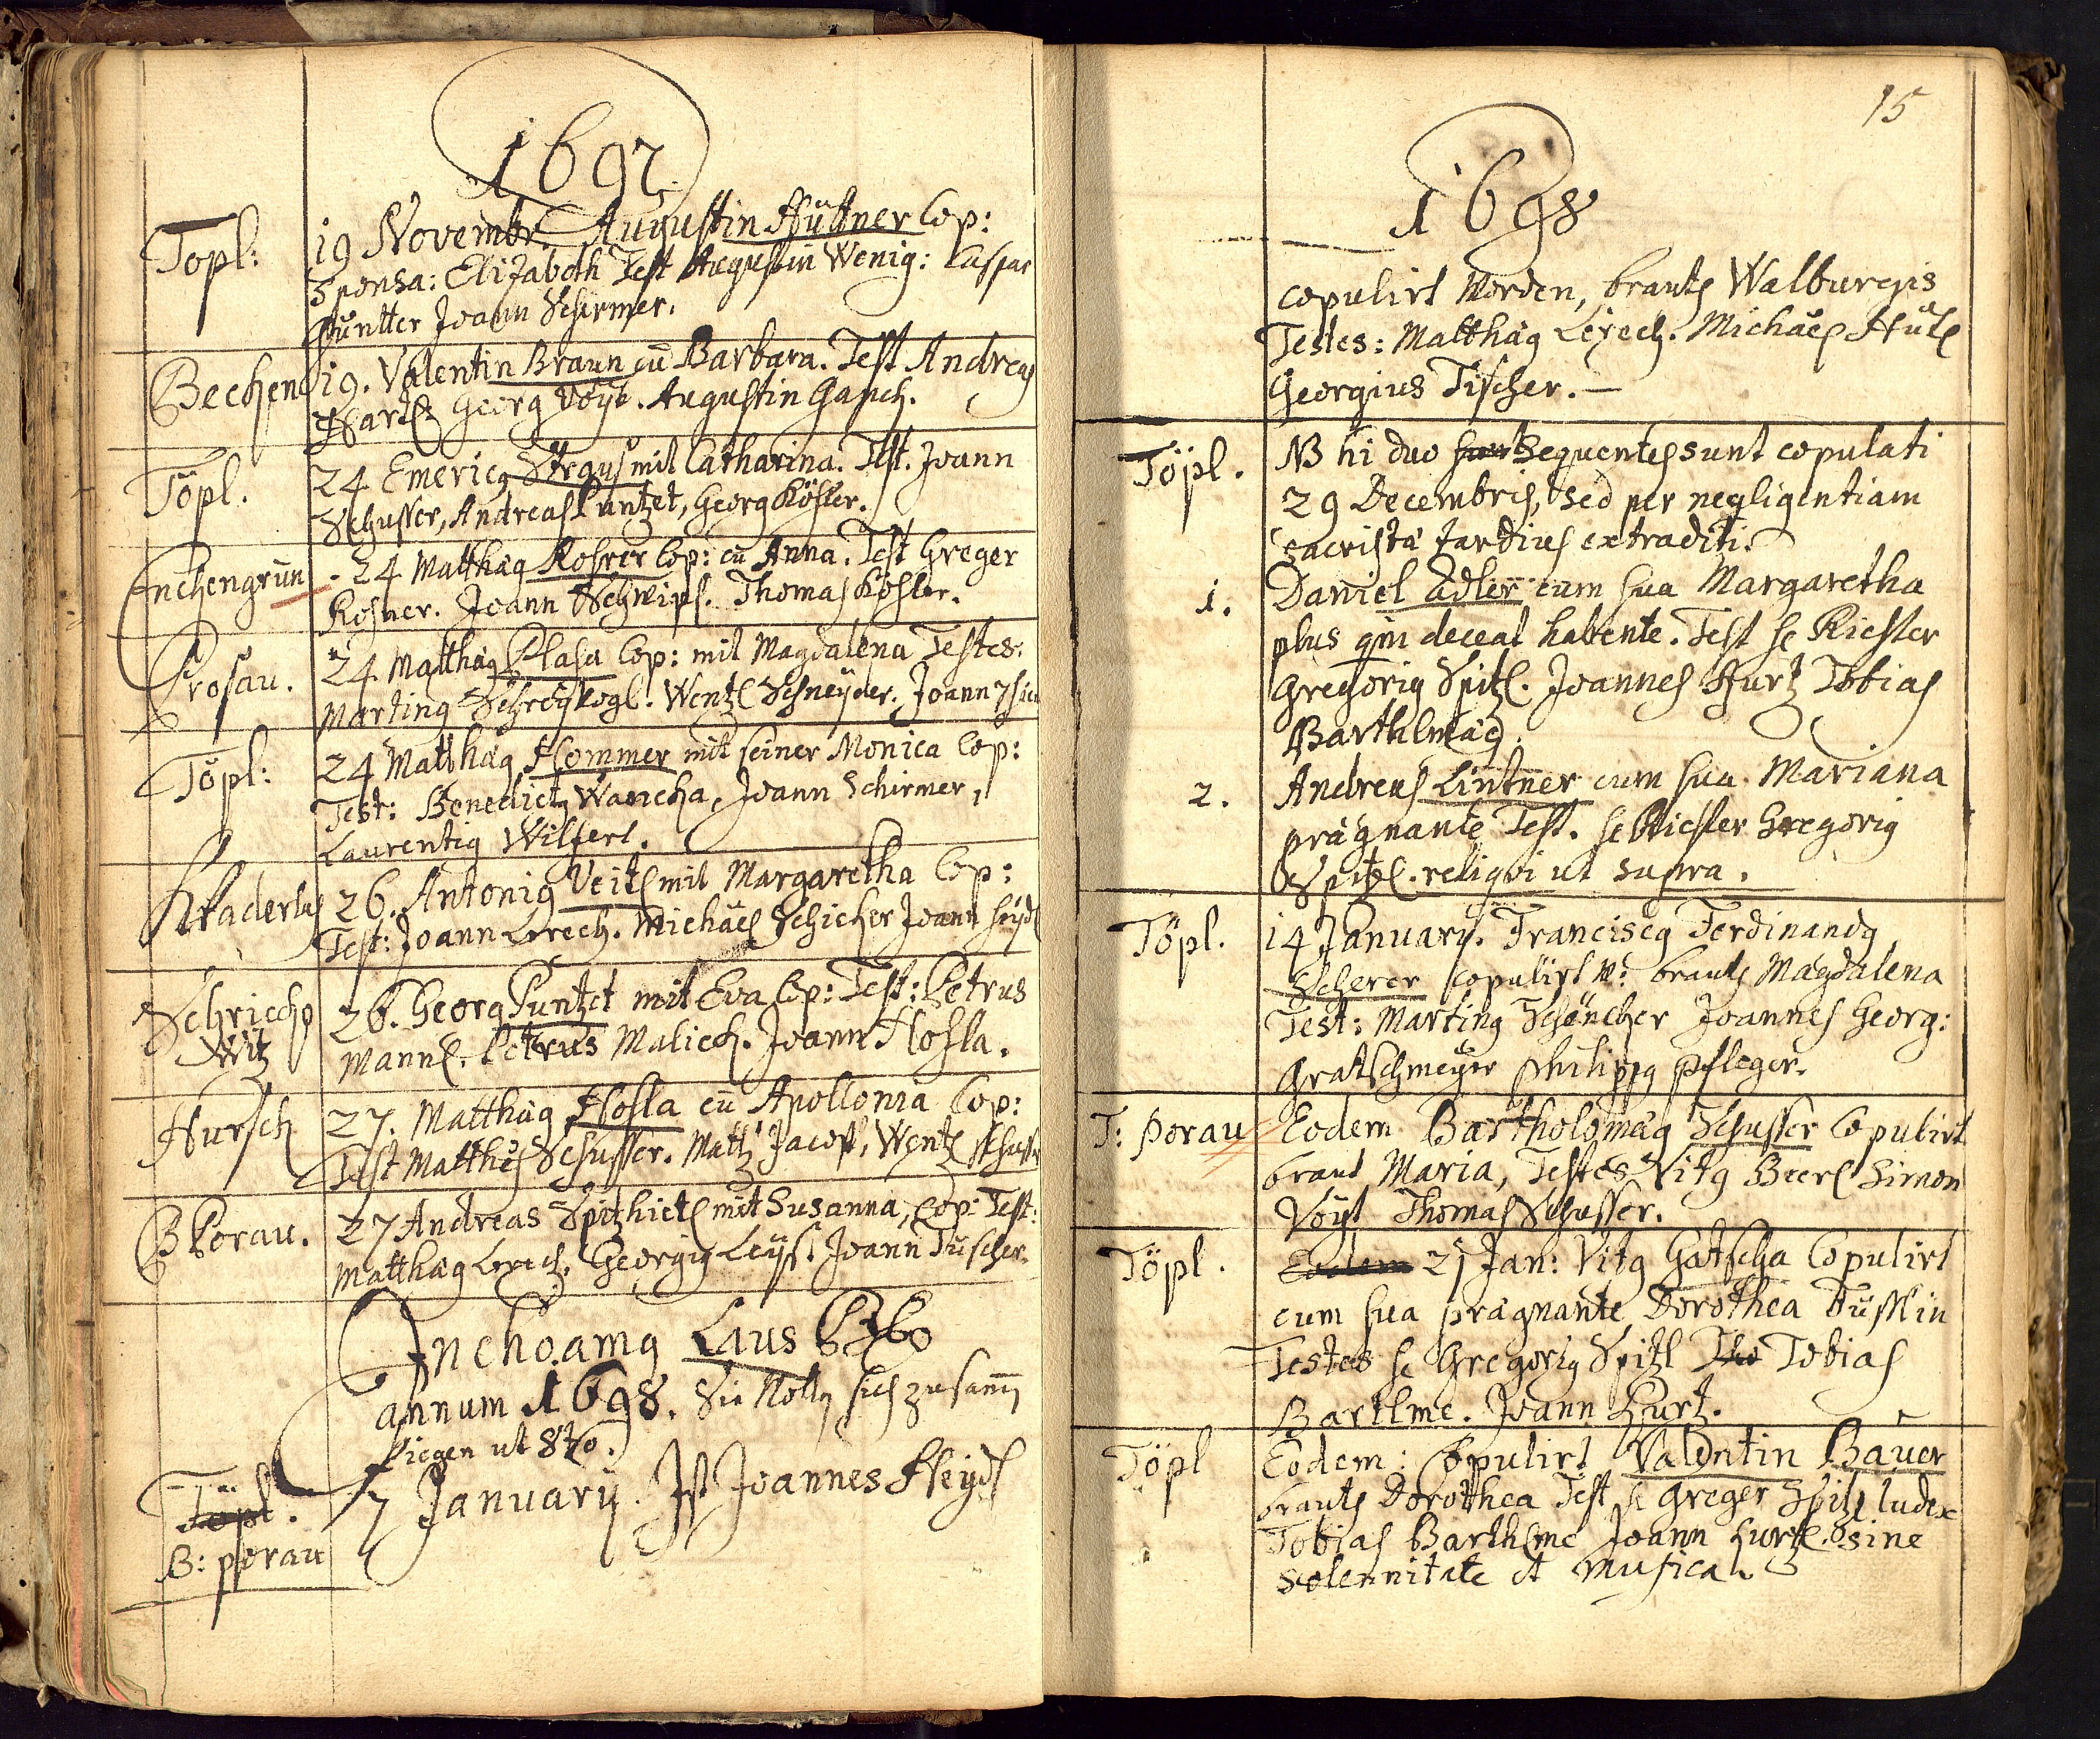 1697
Topl: 19 Novembr. Augustin Hüttner Cop:
Sponsa: Elizabeth Test Augustin Wenig: Caspar
Güntter Joann Schirmer.
Bechen 19. Valentin Braun cū Barbara. Test Andreas
Hartl Georg Voÿt. Augustin Gasch.
Töpl. 24 Emericg mit Catharina. Test. Joann
Schusser, Andreas Puntzet, Georg Köhler.
Enchengrün 24 Matthäg Rohrer Cop: cū Anna. Test Greger
Rosner. Joann Schwipß. Thomas Köhler.
Prosau. 24 Matthäg Plasa Cop: mit Magdalena Testes:
Marting Schreÿvogl. Wentzl Schneÿder. Joann
Töpl: 24 Matthäg Hommer mit seiner Monica Cop:
Test: Benedictg Waricha, Joann Schirmer,
Laurentig Wilfert.
Kladerlas 26. Antonig Veitl mit Margaretha Cop:
Test: Joann Lerech. Michäel Schicker Joann Heÿdl
Schrickowitz 26. Georg Puntzet mit Eva Cop: Test: Petrus
Mannl. Petrus Malick. Joann Hosla.
Hursch 27. Matthäg Hosla cū Apollonia Cop:
Test Matthes Schusser. Mattz Jacob, Wentzl Schusser
B Porau. 27 Andreas Spitzhietl mit Susanna, Cop: Test:
Matthäg Lerech. Georgig Leÿst Joann Tüscher.
Inchoamg Laus Deo
annum 1698. Sie wollen sich zusamm
fiegen ut 8to.
Töpl.
B: porau 7 Januarÿ. Ist Joannes Heÿdl
15
1698
copulirt worden, brauts Walburgis
Testes: Matthäg Lerech. Michäel Hütl
Georgius Tischer.
Töpl. NB hi duo sequentes sunt copulati
29 Decembris, sed per negligentiam
sacristæ tardius extraditi.
1. Daniel Adler cum sua Margaretha
plus qm deceat habente. Test H Richter
Gregorig Spitzl. Joannes Hurtz Tobias
Barthlmäg.
2. Andreas Lintner cum sua Mariana
prägnante Test. H Richter Gregorig
Spitzl. reliqvi ut supra.
Töpl. 14 Januarÿ. Franciscg Ferdinandg
Scherer copulirt w: brauts Magdalena
Test: Marting Schöncher Joannes Georg:
Gratschmeÿer Philippg Pfleger.
T: Porau Eodem Bartholomäg Schusser Copulirt
braut Maria, Testes Vitg Beerl Simon
Voÿt Thomas Schusser.
Töpl. Eodem 21 Jan: Vitg Gatscha Copulirt
cum sua prägnante Dorothea Tüsslin
Testes H Gregorig Spitzl Tho Tobias
Bartlme. Joann Hurtz.
Töpl Eodem: Copulirt Valentin Bauer
brauts Dorothea Test H Greger Spitzl Iudex
Tobias Barthlme Joann Hurtz. sine
solennitate et musica.